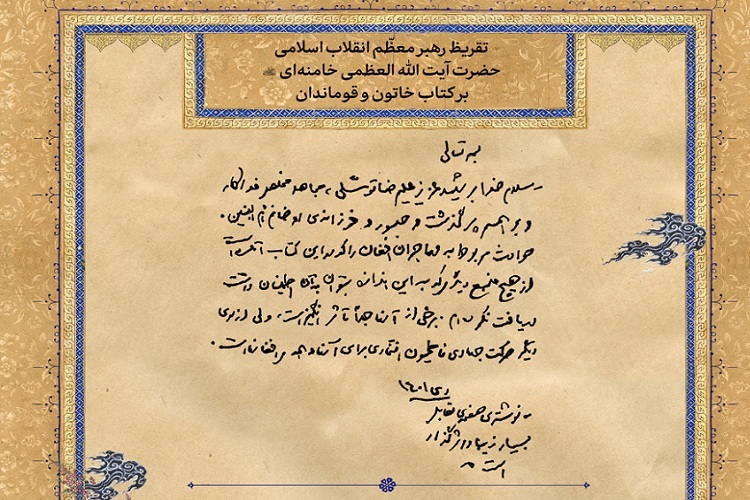 تقریظ رهبر معظّم انقلاب اسلامی
حضرت آیت الله العظمی خامنه‌ای
بر کتاب خاتون و قوماندان
بسمه تعالی
سلام خدا بر شهید عزیز علیرضا توسّلی، مجاهد مخلص فداکار،
و بر همسر پرگذشت و صبور و فرزانه‌ی او خانم امّ البنین.
حوادث مربوط به مهاجران افغان را که در این کتاب آمده است
از هیچ منبع دیگری که به این اندازه بتوان به آن اطمینان داشت
دریافت نکرده‌ام. برخی از آنها جدّاً تأثّر انگیز است، ولی از سوی
دیگر حرکت جهادی فاطمیون افتخاری برای آنها و همه افغانها است.
دی ۱۴۰۱
نوشته‌ی صفحه‌ی مقابل
بسیار زیبا و اثرگذار
است